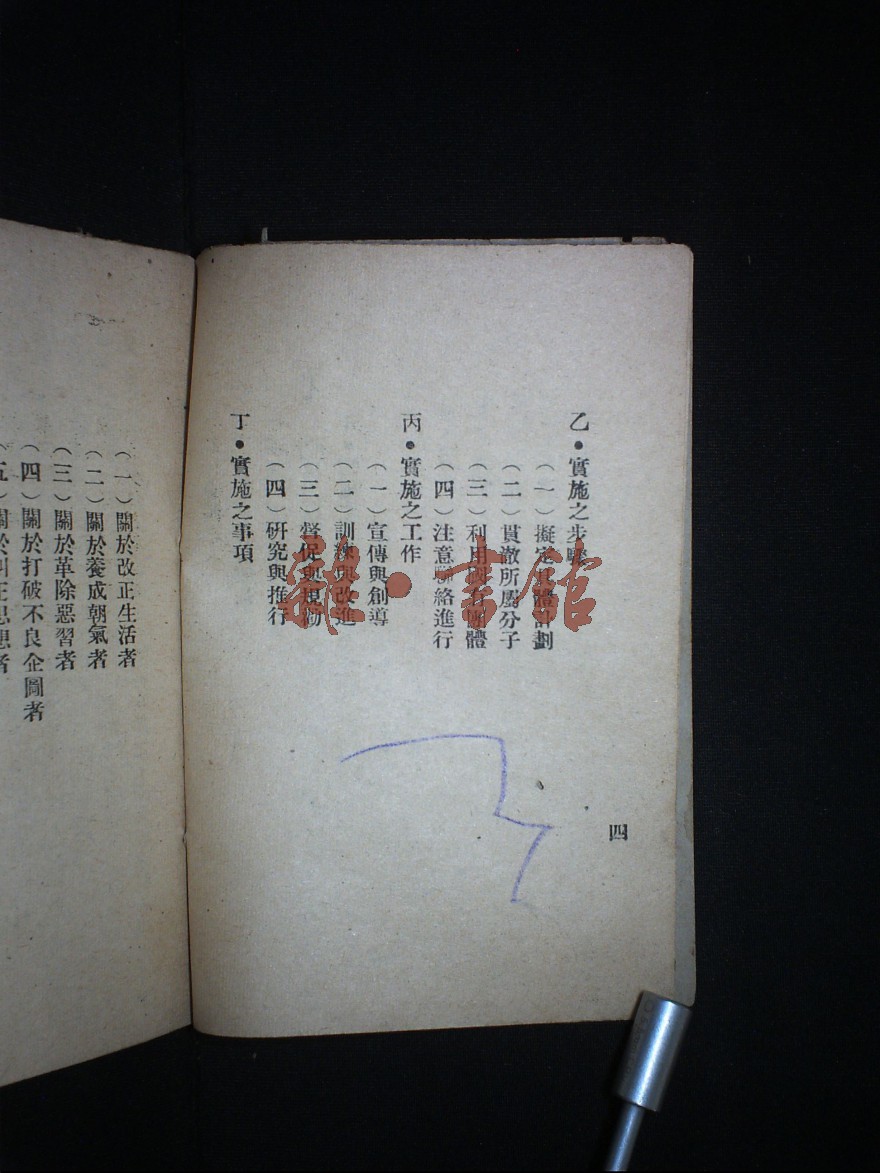 乙·實施之步驟
(一)擬定具體計劃
(二)貫澈所屬分子
(三)利用固有團體
(四)注意聯絡進行
丙·實施之工作
(一)宣傳與創導
(二)訓練與改進
(三)督促與規勸
(四)研究與推行
丁·實施之事項
四
(一)關於改正生活者
(二)關於養成朝氣者
(三)關於革除惡習者
(四)關於打破不良企圖者
(五)關於糾正思想者
雜·書館